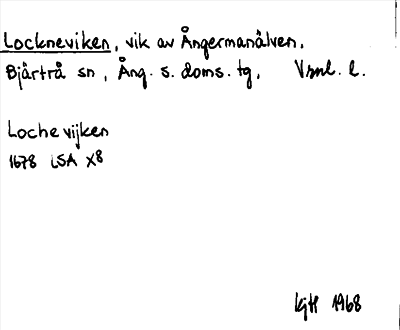 Lockneviken, vik av Ångermanälven.
Bjärtrå sn, Ång. s. doms. tg, Vbnl. l.
Lochevijken
1678 LSA X8
KjH 1968